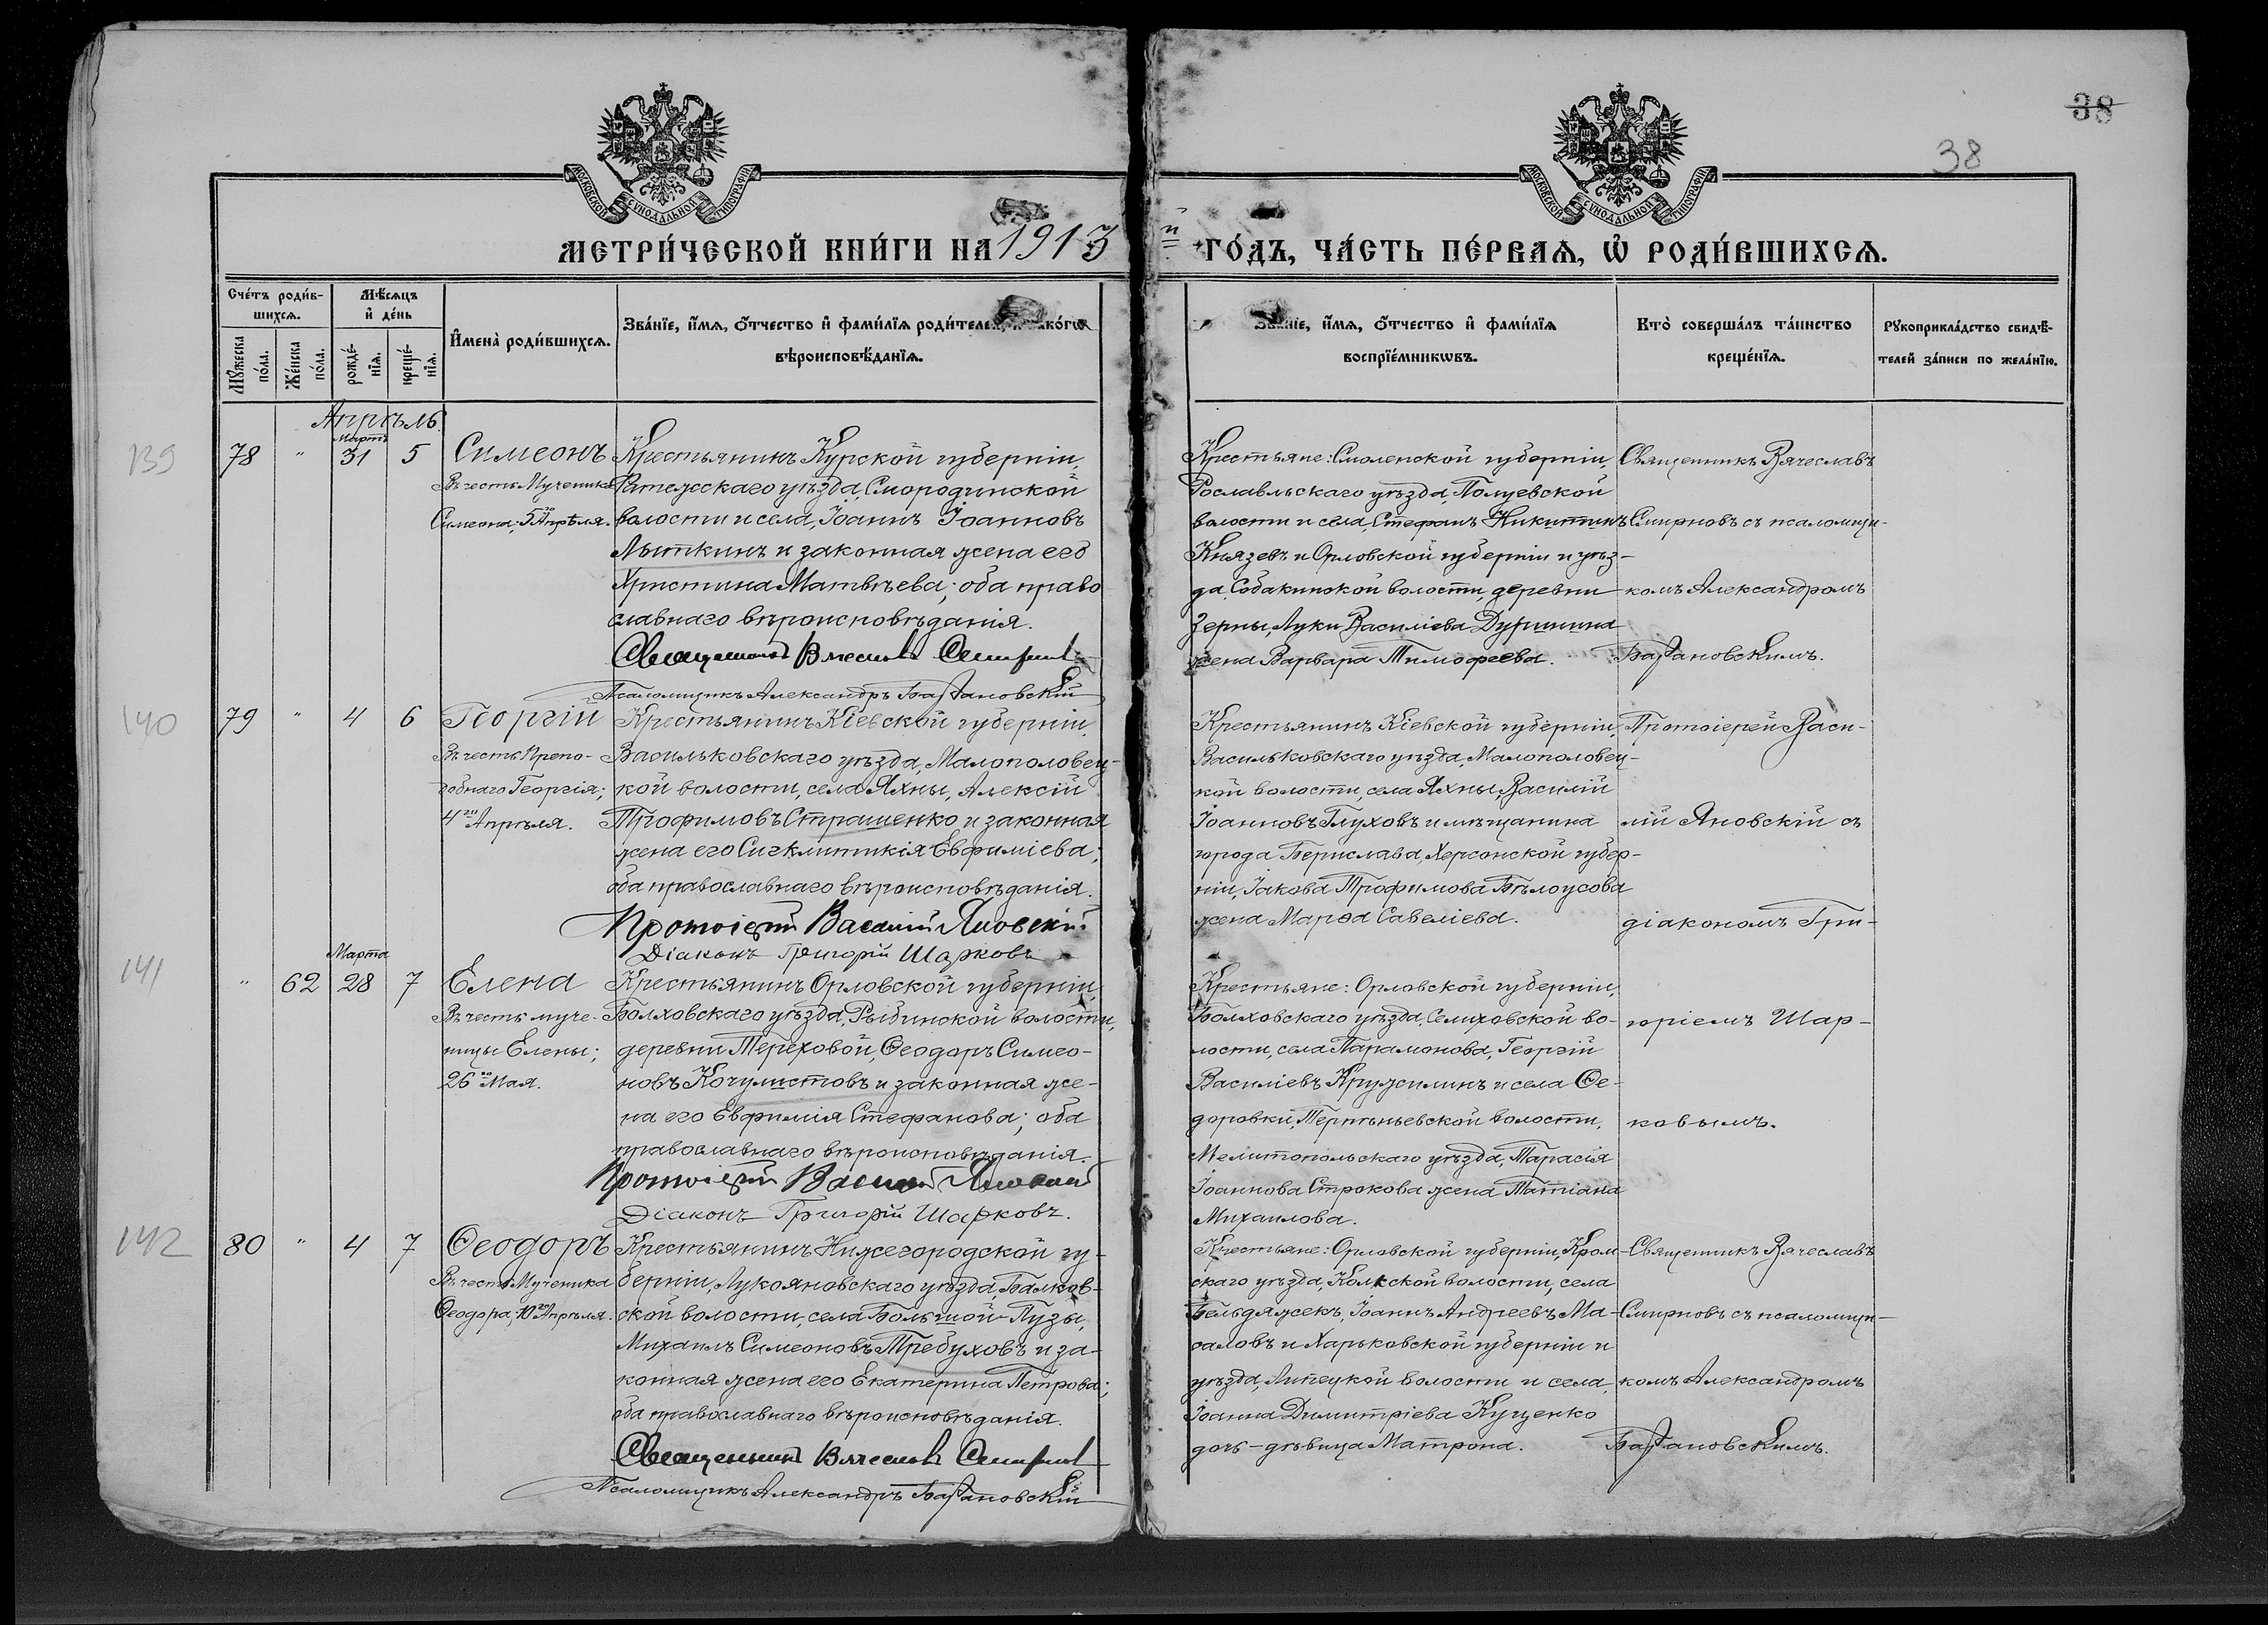 38
38
МОСКОВСКОЙ СѴНОДАЛЬНОЙ ТИПОГРАФІИ
МОСКОВСКОЙ СѴНОДАЛЬНОЙ ТИПОГРАФІИ
МЕТРИ́ЧЕСКОЙ КНИ́ГИ НА 1913 й ГО́ДЪ, ЧА́СТЬ ПЕ́РВАѦ, Ѽ РОДИ́ВШИХСѦ.
Сче́тъ роди́в-
шихсѧ.
Мѣ́сѧцъ
и҆ де́нь
Мꙋ́жеска по́ла.
Же́нска по́ла.
рожде́-
нїѧ.
креще́-
нїѧ.
И҆мена̀ роди́вшихсѧ.
Зва́нїе, и҆́мѧ, ѻ҆́тчество и҆ фами́лїѧ роди́телей,
вѣроисповѣ́данїѧ.
Зва́нїе, и҆́мѧ, ѻ҆́тчество и҆ фами́лїѧ
воспрїе́мникѡвъ.
Кто̀ соверша́лъ та́инство
креще́нїѧ.
Рꙋкоприкла́дство свидѣ́-
телей за́писи по жела́нїю.
Апрѣль.
139
78 " Мартъ 31 5
Симеонъ
Въ честь Мученика
Симеона; 5го Апрѣля.
Крестьянинъ Курской губерніи,
Фатежскаго уѣзда, Смородинской
волости и села, Іоаннъ Іоанновъ
Лыткинъ и законная жена его
Христина Матвѣева; оба право
славнаго вѣроисповѣданія.
Священникъ Вячеславъ Смирновъ
Псаломщикъ Александръ Базановскій
Крестьяне: Смоленской губерніи,
Рославльскаго уѣзда, Полуевской
волости и села, Стефанъ Никитинъ
Князевъ и Орловской губерніи и уѣз-
да, Собакинской волости, деревни
Зерны, Луки Василіева Дурнина
жена Варвара Тимофеева.
Священникъ Вячеславъ
Смирновъ съ псаломщи-
комъ Александромъ
Базановскимъ.
140
79 " 4 6
Георгій
Въ честь Препо-
добнаго Георгія;
4го Апрѣля.
Крестьянинъ Кіевской губерніи,
Васильковскаго уѣзда, Малополовец-
кой волости, села Яхны, Алексій
Трофимовъ Страшенко и законная
жена его Сигклитикія Евфиміева;
оба православнаго вѣроисповѣданія.
Протоіерей Василій Яновскій
Діаконъ Григорій Шарковъ
Крестьянинъ Кіевской губерніи,
Васильковскаго уѣзда, Малополовец-
кой волости, села Яхны, Василій
Іоанновъ Глуховъ и мѣщанина
города Берислава, Херсонской губер-
ніи, Іакова Трофимова Бѣлоусова
жена Марѳа Савеліева.
Протоіерей Васи-
лій Яновскій съ
діакономъ Гри-
141
" 62 Марта 28 7
Елена
Въ честь муче-
ницы Елены;
26го Мая.
Крестьянинъ Орловской губерніи,
Болховскаго уѣзда, Рыбинской волости,
деревни Тереховой, Ѳеодоръ Симео-
новъ Кочулистовъ и законная же-
на его Евфимія Стефанова; оба
православнаго вѣроисповѣданія.
Протоіерей Василій Яновскій
Діаконъ Григорій Шарковъ.
Крестьяне: Орловской губерніи,
Болховскаго уѣзда, Селиховской во-
лости, села Парамонова, Георгій
Василіевъ Кружилинъ и села Ѳе-
доровки, Терпѣньевской волости,
Мелитопольскаго уѣзда, Тарасія
Іоаннова Строкова жена Татіана
Михаилова.
горіемъ Шар-
ковымъ.
142
80 " 4 7
Ѳеодоръ
Въ честь Мученика
Ѳеодора; 10го Апрѣля.
Крестьянинъ Нижегородской гу-
берніи, Лукояновскаго уѣзда, Балков-
ской волости, села Большой Пузы,
Михаилъ Симеоновъ Требуховъ и за-
конная жена его Екатерина Петрова;
оба православнаго вѣроисповѣданія.
Священникъ Вячеславъ Смирновъ
Псаломщикъ Александръ Базановскій
Крестьяне: Орловской губерніи, Кром-
скаго уѣзда, Колкской волости, села
Бельдяжекъ, Іоаннъ Андреевъ Ма-
саловъ и Харьковской губерніи и
уѣзда, Липецкой волости и села,
Іоанна Димитріева Куценко
дочь-дѣвица Матрона.
Священникъ Вячеславъ
Смирновъ съ псаломщи-
комъ Александромъ
Базановскимъ.